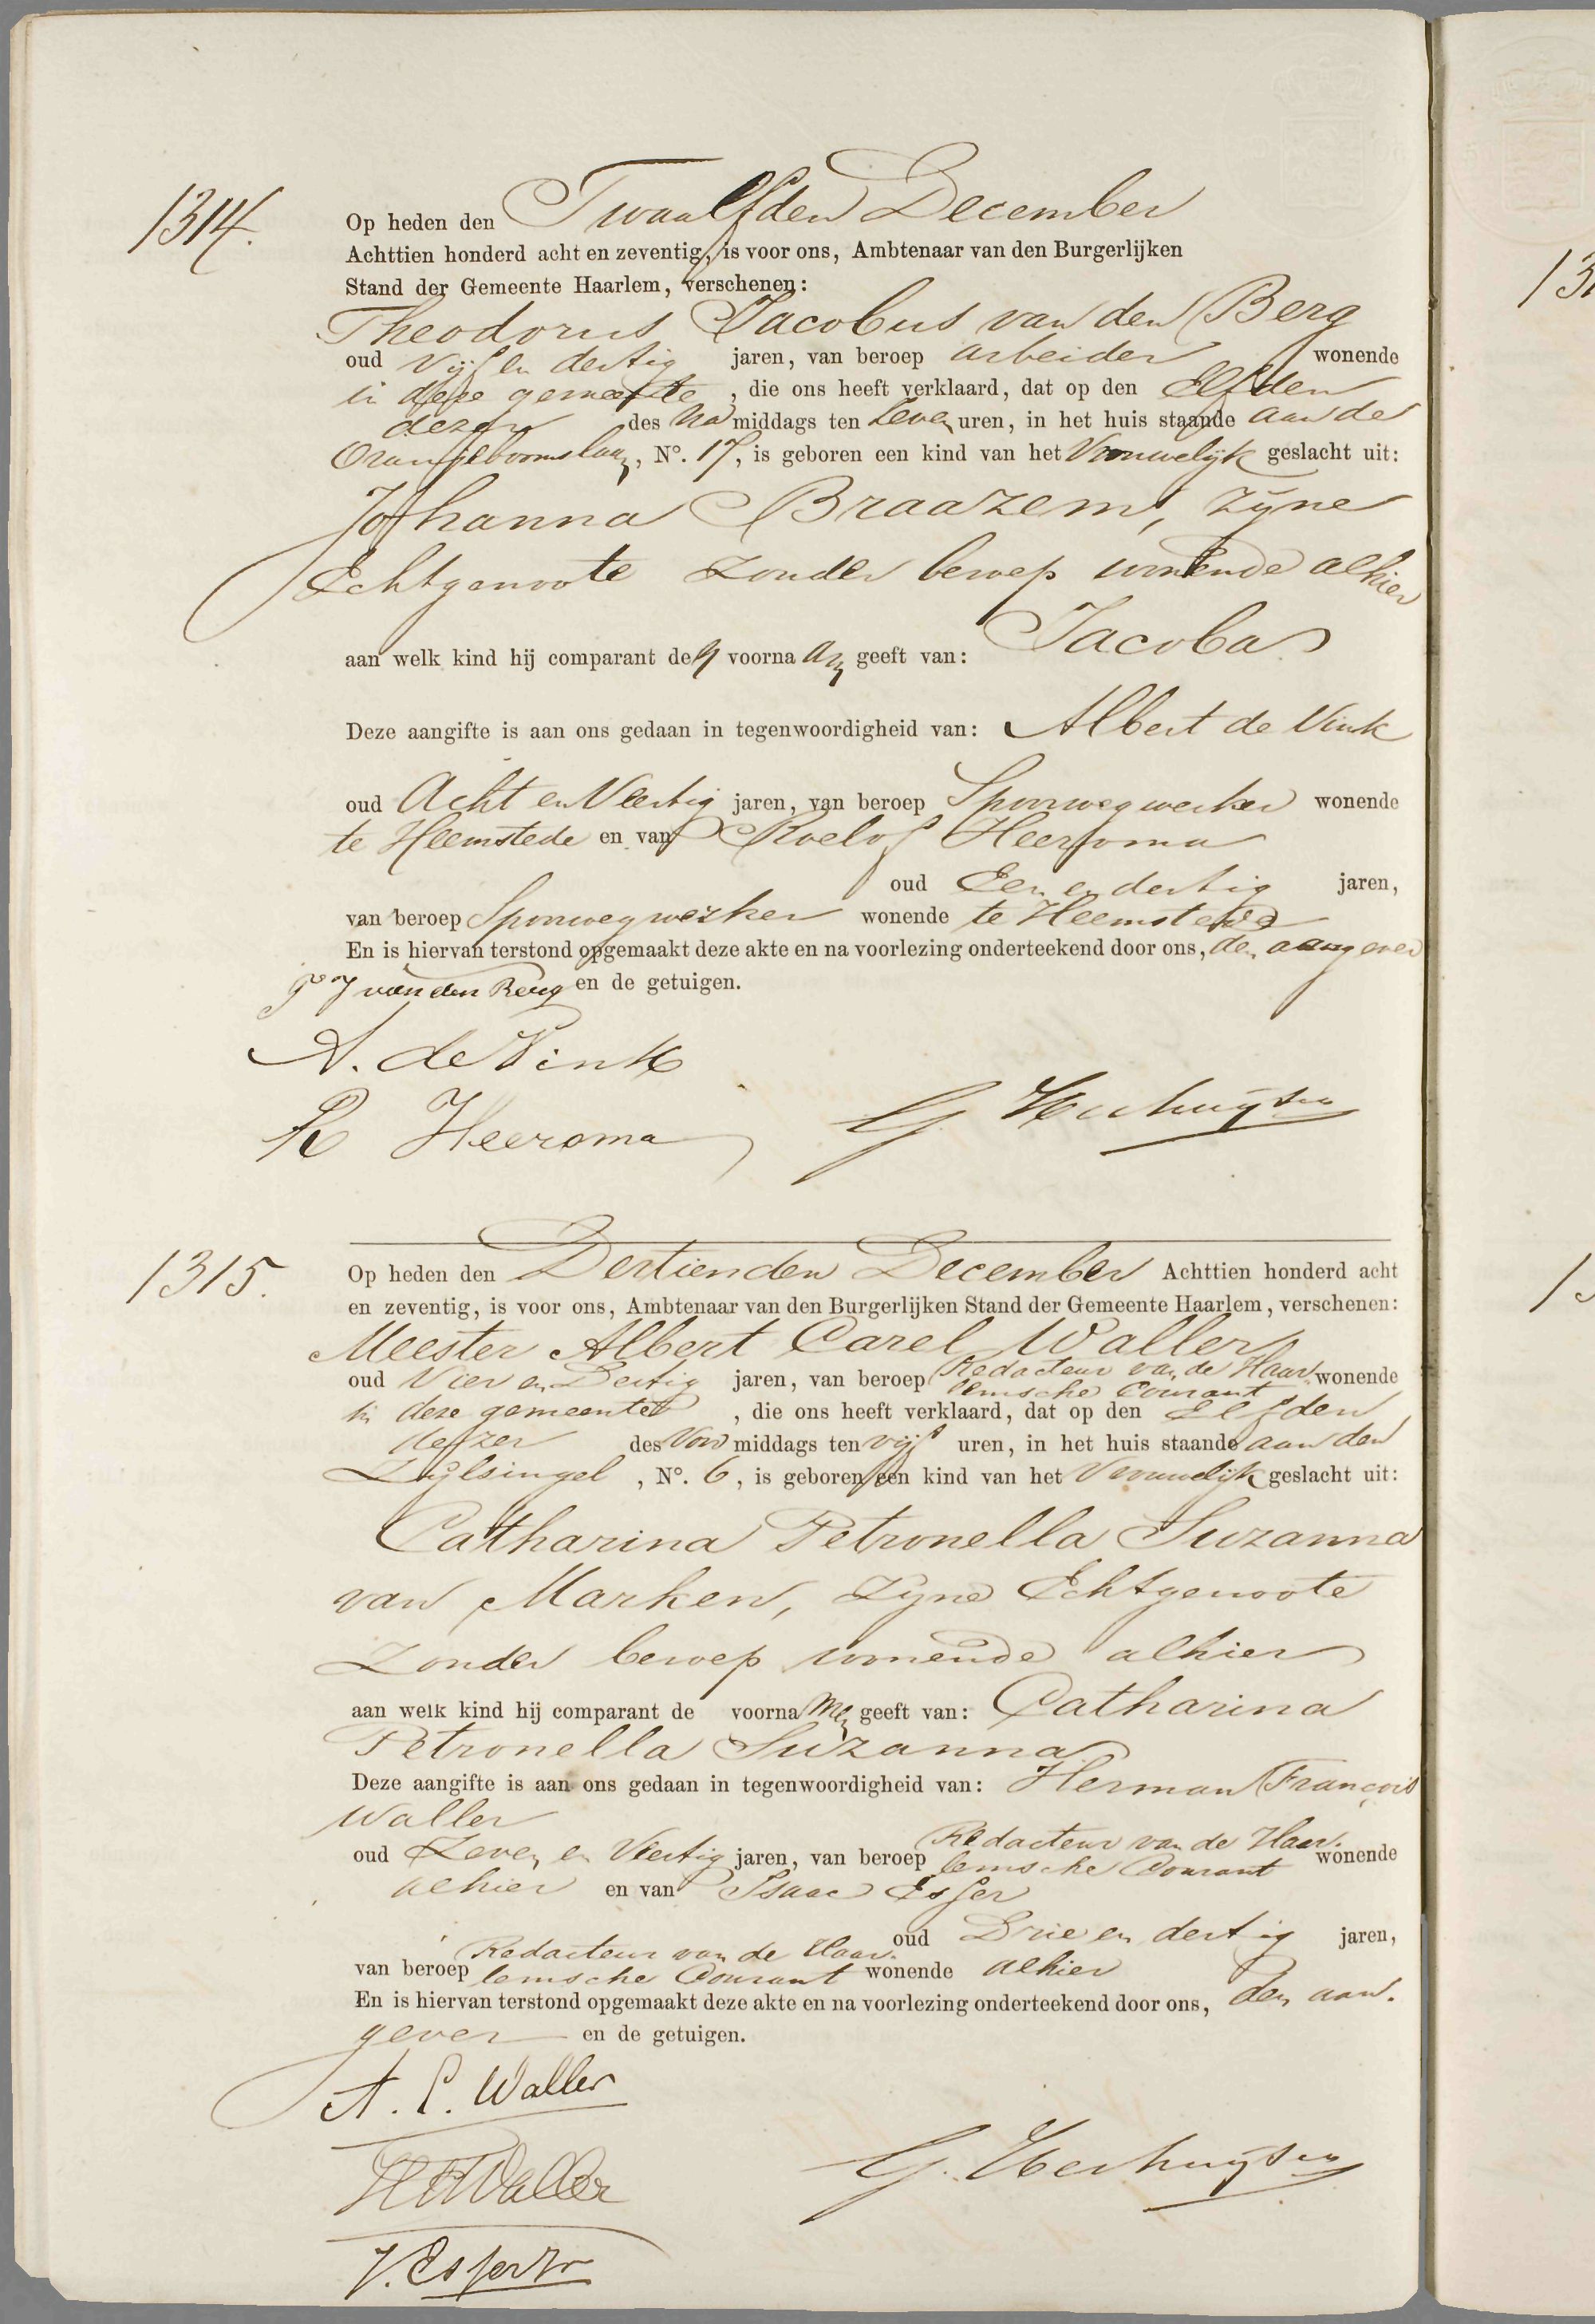 1314.
Op heden den Twaalfden December
Achttien honderd acht en zeventig, is voor ons, Ambtenaar van den Burgerlijken
Stand der Gemeente Haarlem, verschenen:
Theodorus Jacobus van den Berg
oud Vijf en dertig jaren, van beroep arbeider wonende
in deze gemeente, die ons heeft verklaard, dat op den Elfden
dezer des Na middags ten Zeven uren, in het huis staande aan de
Oranjeboomslaan, N°. 17, is geboren een kind van het Vrouwelijk geslacht uit:
Johanna Braazem, zijne
Echtgenoote zonder beroep wonende alhier
aan welk kind hij comparant den voornaam geeft van: Jacoba
Deze aangifte is aan ons gedaan in tegenwoordigheid van: Albert de Vink
oud Acht en Veertig jaren, van beroep Spoorwegwerker wonende
te Heemstede en van Roelof Heeroma
oud Een en dertig jaren,
van beroep Spoorwegwerker wonende te Heemstede
En is hiervan terstond opgemaakt deze akte en na voorlezing onderteekend door ons, den aangever
T J van den Berg en de getuigen.
A. de Vink
R Heeroma
1315.
Op heden den Dertienden December Achttien honderd acht
en zeventig, is voor ons, Ambtenaar van den Burgerlijken Stand der Gemeente Haarlem, verschenen:
Meester Albert Carel Waller
oud Vier en Dertig jaren, van beroep Redacteur van de Haarlemsche Courant wonende
in deze gemeente, die ons heeft verklaard, dat op den Elfden
dezer des Voor middags ten vijf uren, in het huis staande aan den
Zijlsingel, N°. 6, is geboren een kind van het Vrouwelijk geslacht uit:
Catharina Petronella Suzanna
van Marken, Zijne Echtgenoote
Zonder beroep wonende alhier
aan welk kind hij comparant de voornamen geeft van: Catharina
Petronella Suzanna
Deze aangifte is aan ons gedaan in tegenwoordigheid van: Herman François
Waller
oud Zeven en Veertig jaren, van beroep Redacteur van de Haarlemsche Courant wonende
alhier en van Isaac Esser
oud Drie en dertig jaren,
van beroep Redacteur van de Haarlemsche Courant wonende alhier
En is hiervan terstond opgemaakt deze akte en na voorlezing onderteekend door ons, den aan-
gever en de getuigen.
A. C. Waller
HF Waller
I. Esser Jr